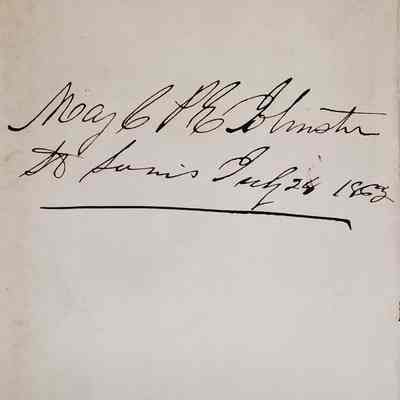 Maj C P E Johnston
St Louis July 24 1863